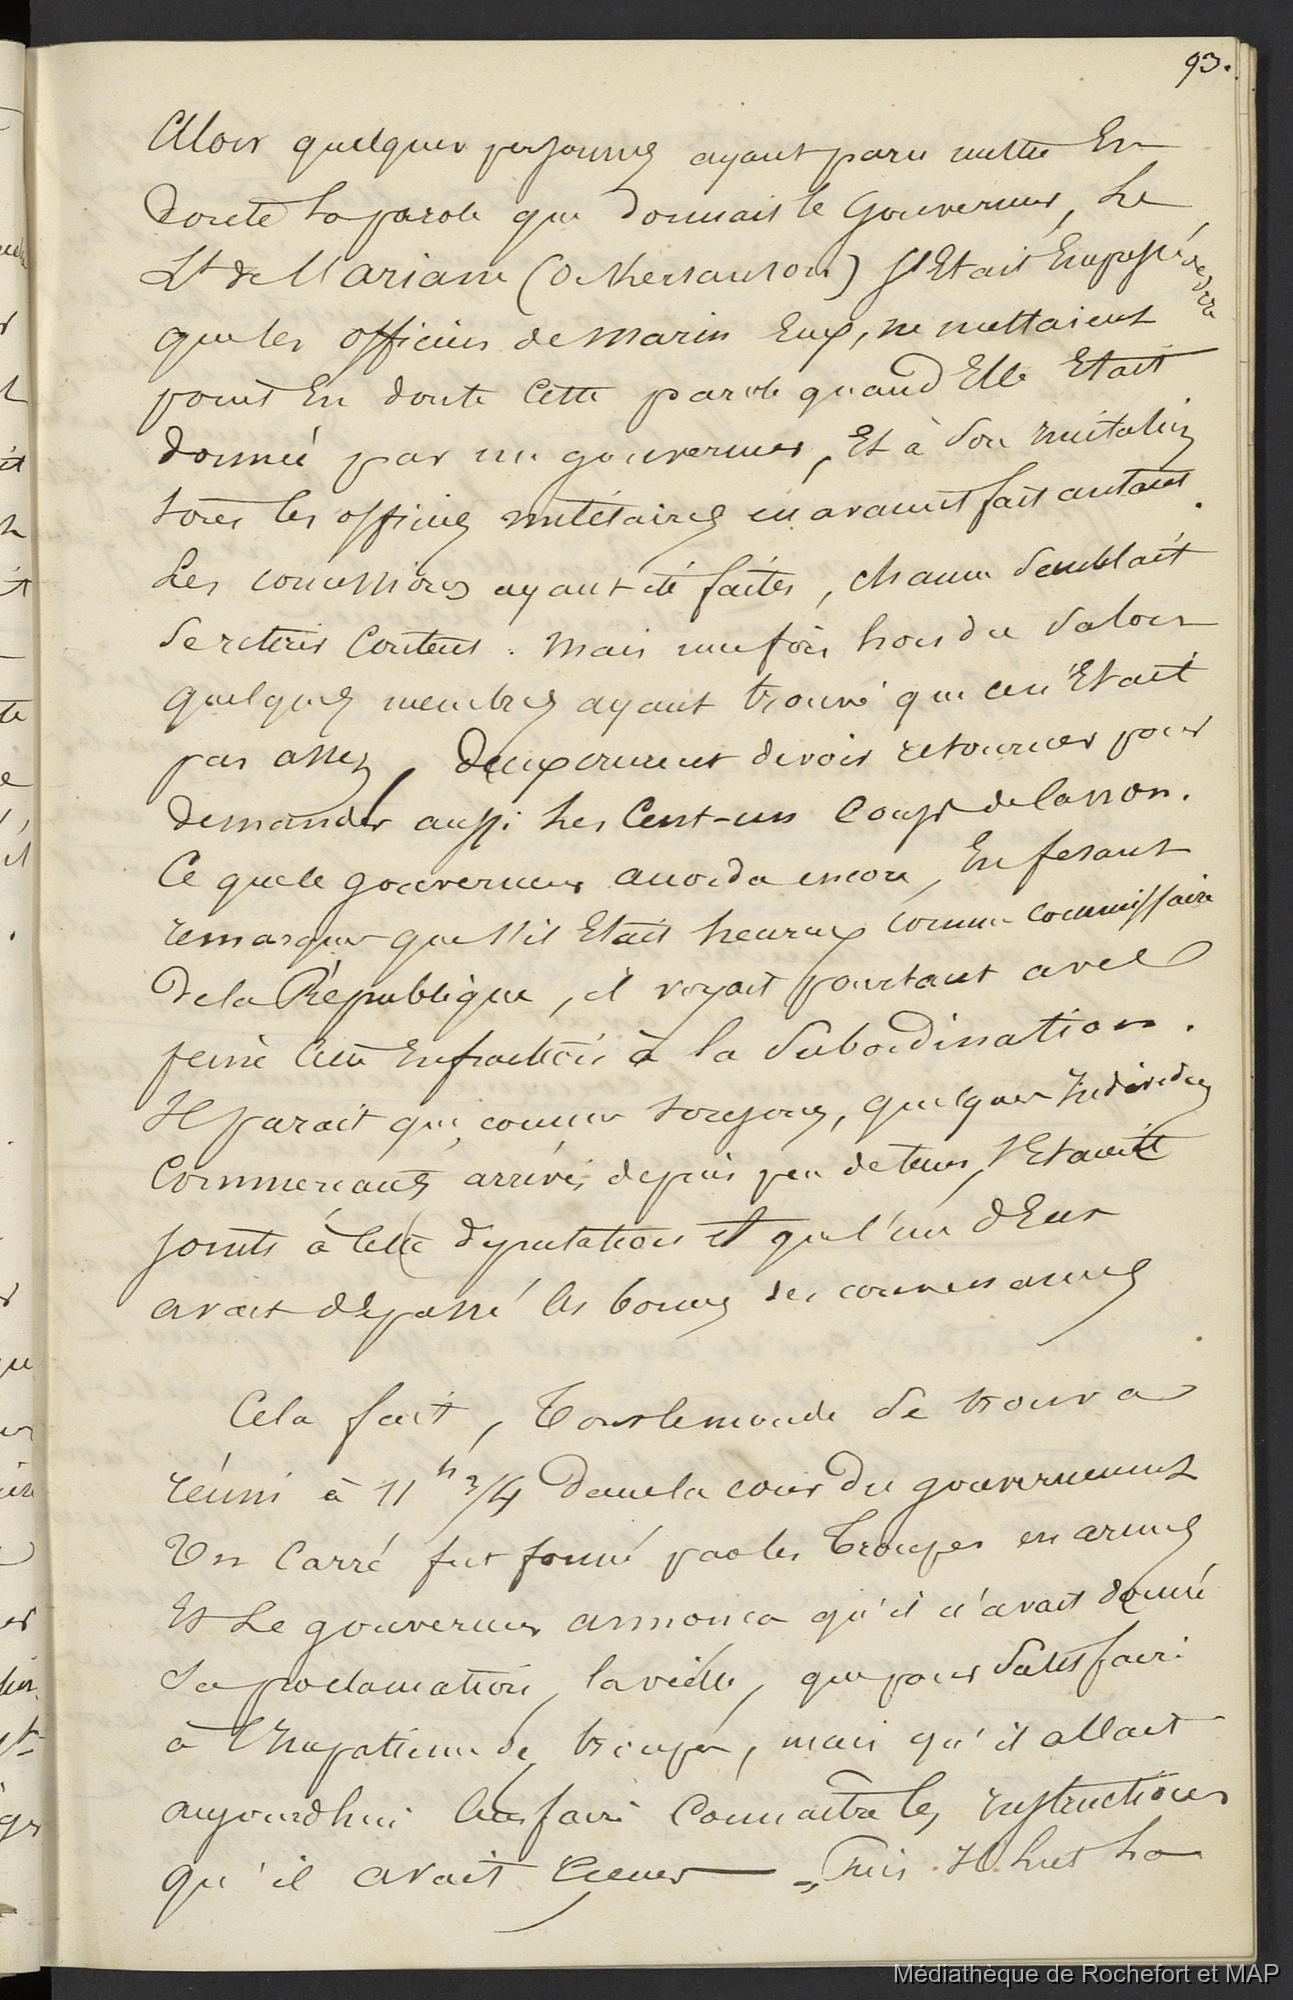 93.
Alors quelques personnes ayant paru mettre En
Doute la parole que Donnait le Gouverneur, Le
Lt de Mariane (O Kersauson) s'Etait Empressé de dire
que les officiers de marin Eux, ne mettaient
point En doute Cette parole quand Elle Etait
Donnée par un gouverneur, Et à Son
tous les officiers militaires en avaient fait autant.
Les concessions ayant été faites, chacun Semblait
Se retirer Content. Mais une fois hors du Salon
quelques membres ayant trouvé que ce n'Etait
pas assez, crurent devoir retourner pour
Demander aussi Les Cent-un Coups de Canon.
Ce que le gouverneur accorda encore, En fesant
remarquer que s'il Etait heureux comme commissaire
De la République, il voyait pourtant avec
peine Cette Enfraction à la Subordination.
Il parait que, comme toujours, quelques Individus
Commerçants arrivés depuis peu de tems, s'Etaient
joints à Cette députation et que l'un d'Eux
avait dépassé les bornes des convenances.
Cela fait, Tout le monde Se trouva
réuni à 11 h 3/4 Dans la cour du gouvernement
Un Carré fut formé par les Troupes en armes
Et Le gouverneur annonca qu'il n'avait donné
Sa proclamation, la veille, que pour Satisfaire
à l'Impatience de troupes, mais qu'il allait
aujourdhui leur faire Connaitre les Instructions
qu'il avait recues — Puis Il lut la
Médiathèque de Rochefort et MAP